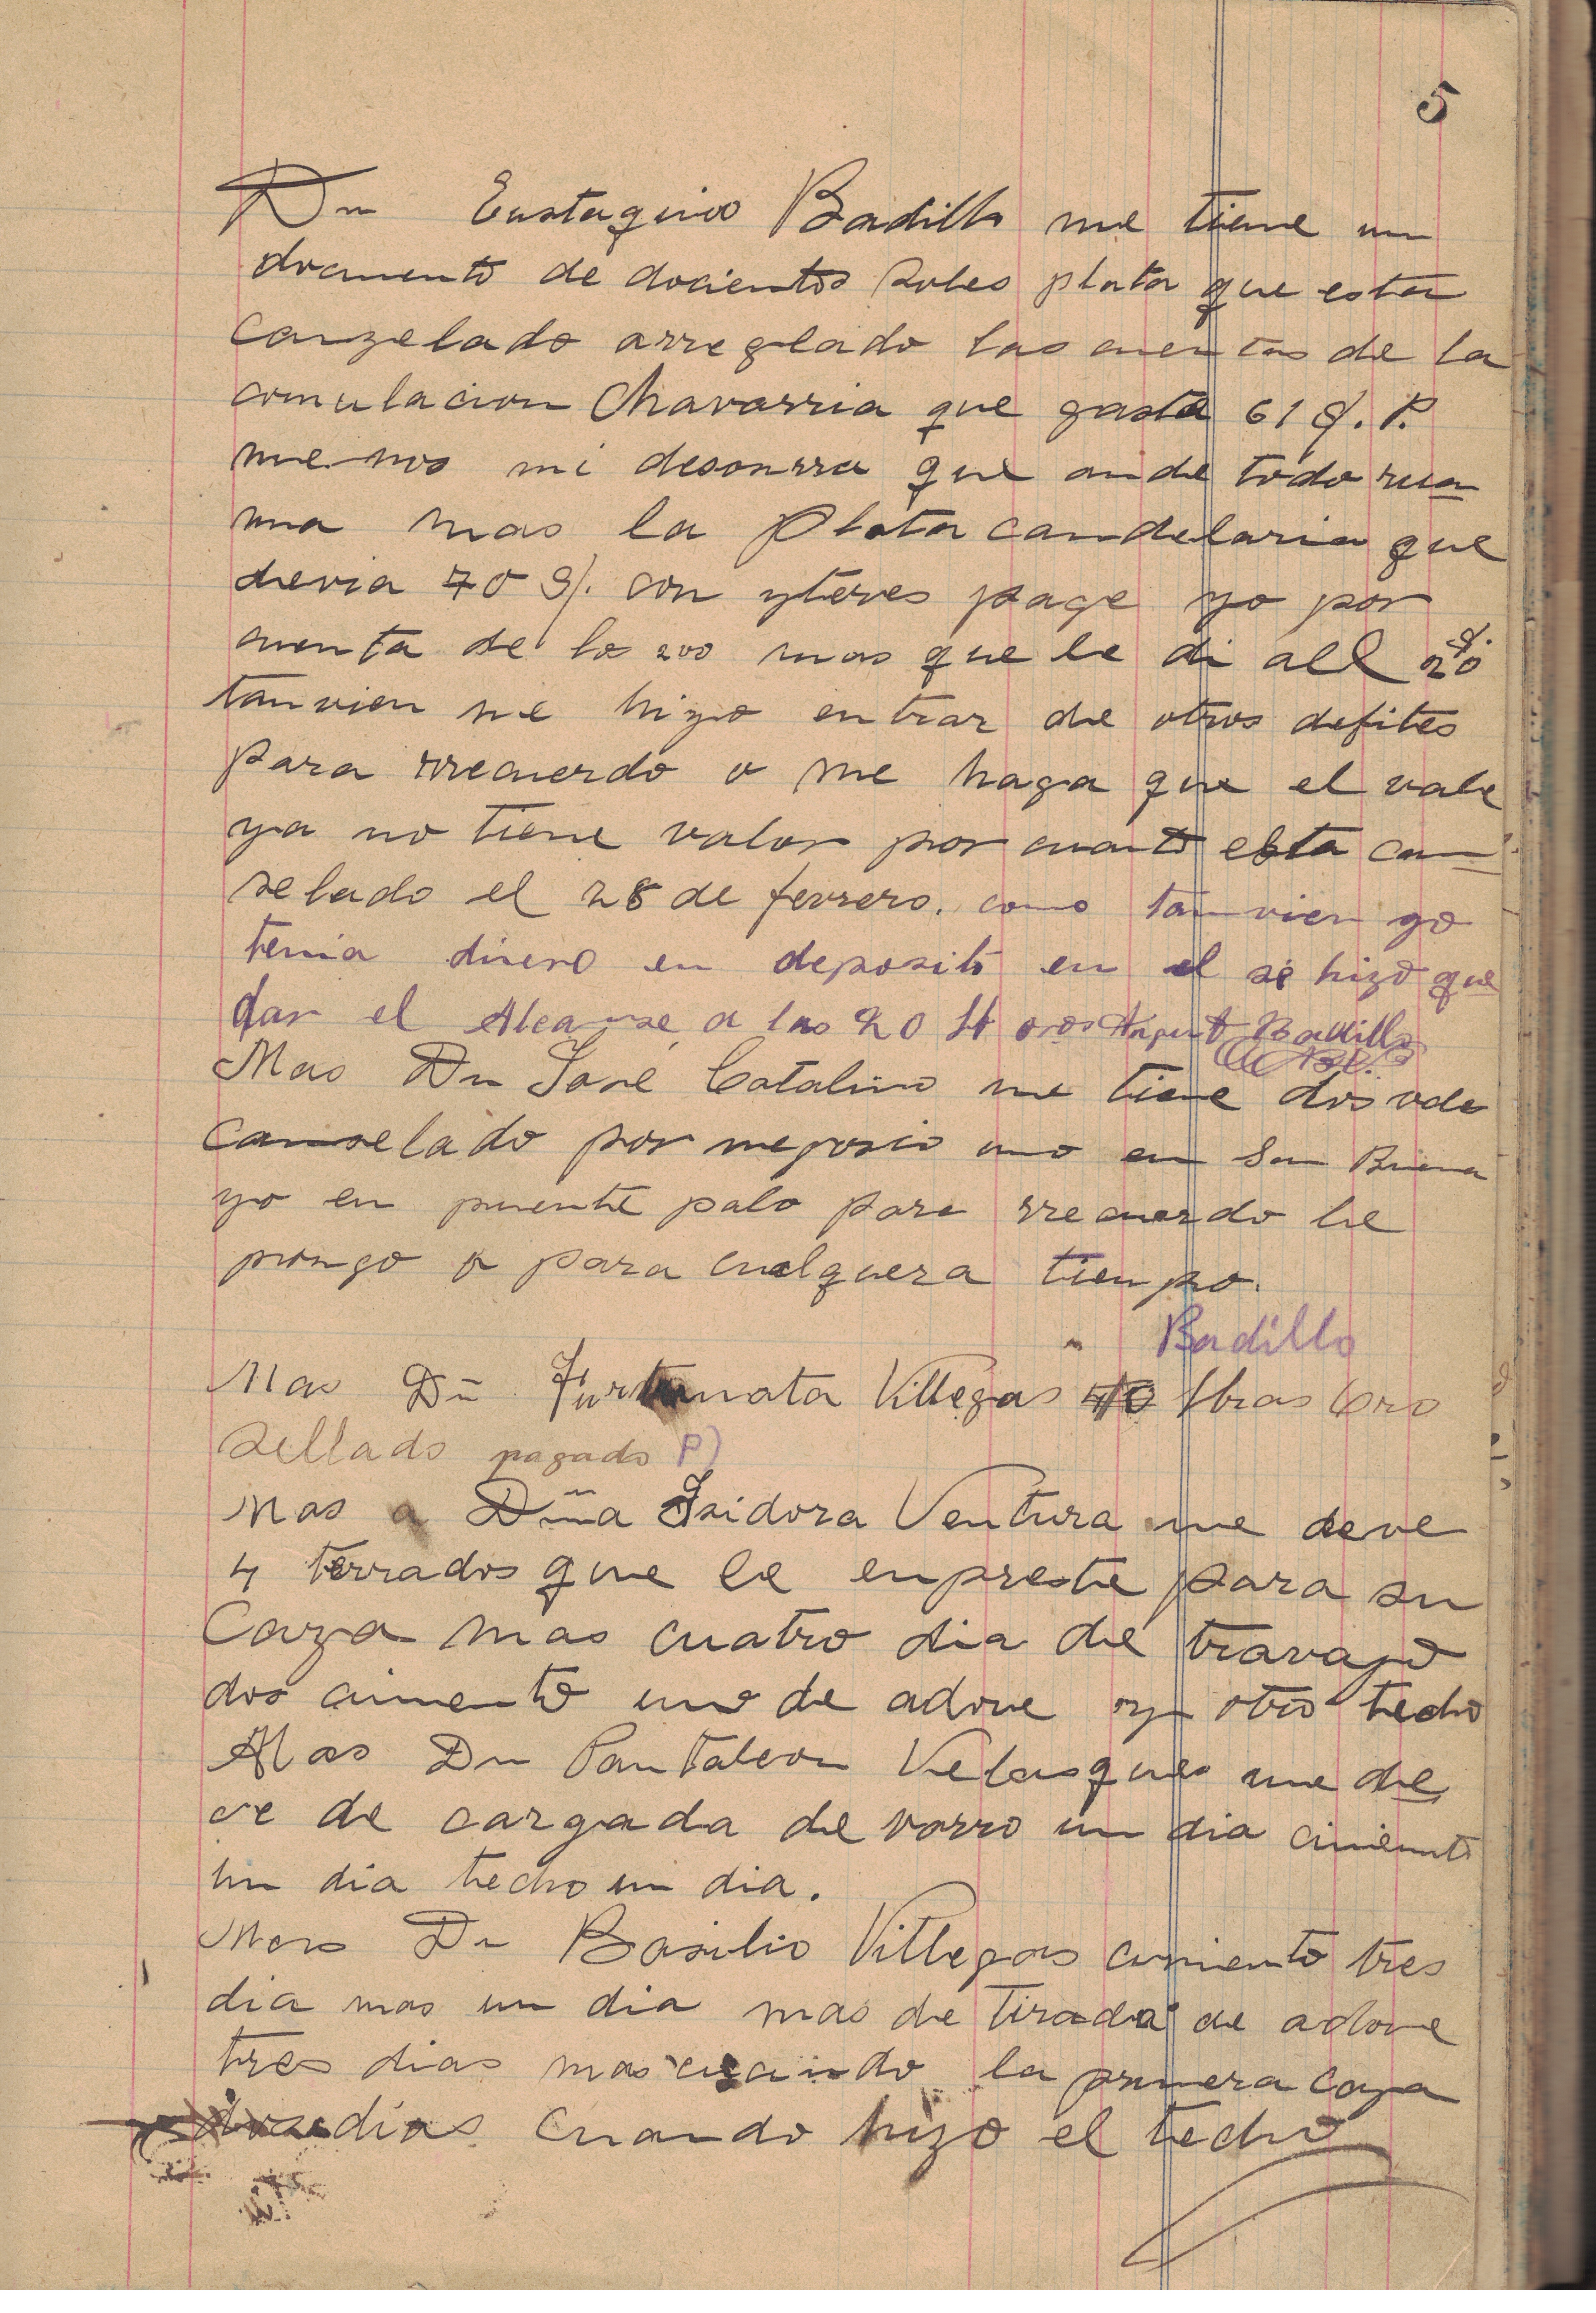 5
Dn Eustaquio Badillo me tiene un
documento de docientos soles plata que esta
canzelado arreglado las cuentas de la
comulacion Chavarria que gasta 61 S. P.
me nos mi desonrra que ande todo rua
ma mas la Plata candelaria que
devia 70 S/. con yteres page yo por
cuenta de los 200 mas que le di all 20 S.
tanvien me hizo entrar de otros defites
para rrecuerdo o me haga que el vale
ya no tiene valor por cuanto esta can
selado el 28 de ferrero. como tanvien yo
tenia dinero en deposito en el se hizo que
dar el Alcanse a las 20 H Badillo
Mas Dn Jose Catalino me tiene dos vales
canselado por negosio uno en San Buena
yo en puente palo para rrecuerdo le
pongo o para cualquera tienpo.
Badillo
Mas Dñ Furtunata Villegas 40 lbras Oro
Sellado pagado P)
Mas a Dña Isidora Ventura me deve
4 terrados que le enpreste para su
Caza mas cuatro dia de travajo
dos cimento uno de adove y otro techo
Mas Dn Pantaleon Velasques me de
ve de cargada de varro un dia cimiento
un dia techo un dia.
Mas Dn Basilio Villegas cimiento tres
dia mas un dia mas de tirada de adove
tres dias mas cuando la primera caza
dos dias cuando hizo el techo